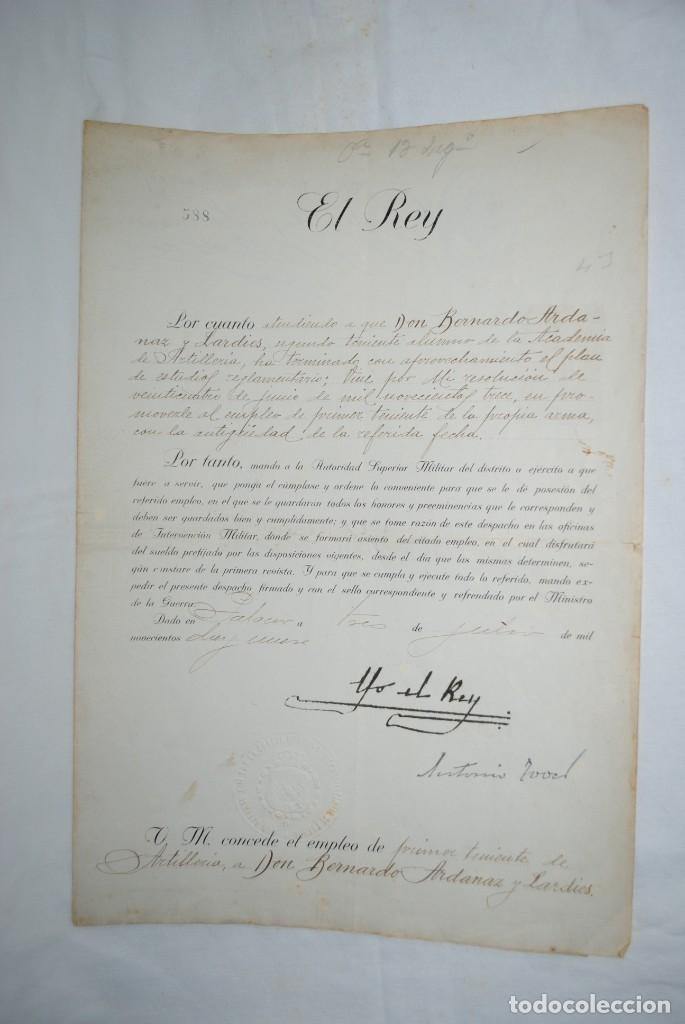 13
588
El Rey
Por cuanto atendiendo a que Don Bernardo Arda-
naz y Lardies, segundo teniente alumno de la Academia
de Artillería, ha terminado con aprovechamiento el plan
de estudios reglamentario; Vine por Mi resolución de
veinticuatro de junio de mil novecientos trece, en pro-
moverle al empleo de primer teniente de la propia arma,
con la antigüedad de la referida fecha.
Por tanto, mando a la Autoridad Superior Militar del distrito o ejército a que
fuere a servir, que ponga el cúmplase y ordene lo conveniente para que se le dé posesión del
referido empleo, en el que se le guardarán todos los honores y preeminencias que le corresponden y
deben ser guardados bien y cumplidamente; y que se tome razón de este despacho en las oficinas
de Intervención Militar, donde se formará asiento del citado empleo, en el cual disfrutará
del sueldo prefijado por las disposiciones vigentes, desde el día que las mismas determinen, se-
gún constare de la primera revista. Y para que se cumpla y ejecute todo lo referido, mando ex-
pedir el presente despacho firmado y con el sello correspondiente y refrendado por el Ministro
de la Guerra.
Dado en Palacio a tres de julio de mil
novecientos
Yo el Rey
Antonio
V. M. concede el empleo de primer teniente de
Artillería, a Don Bernardo Ardanaz y Lardies.
todocoleccion